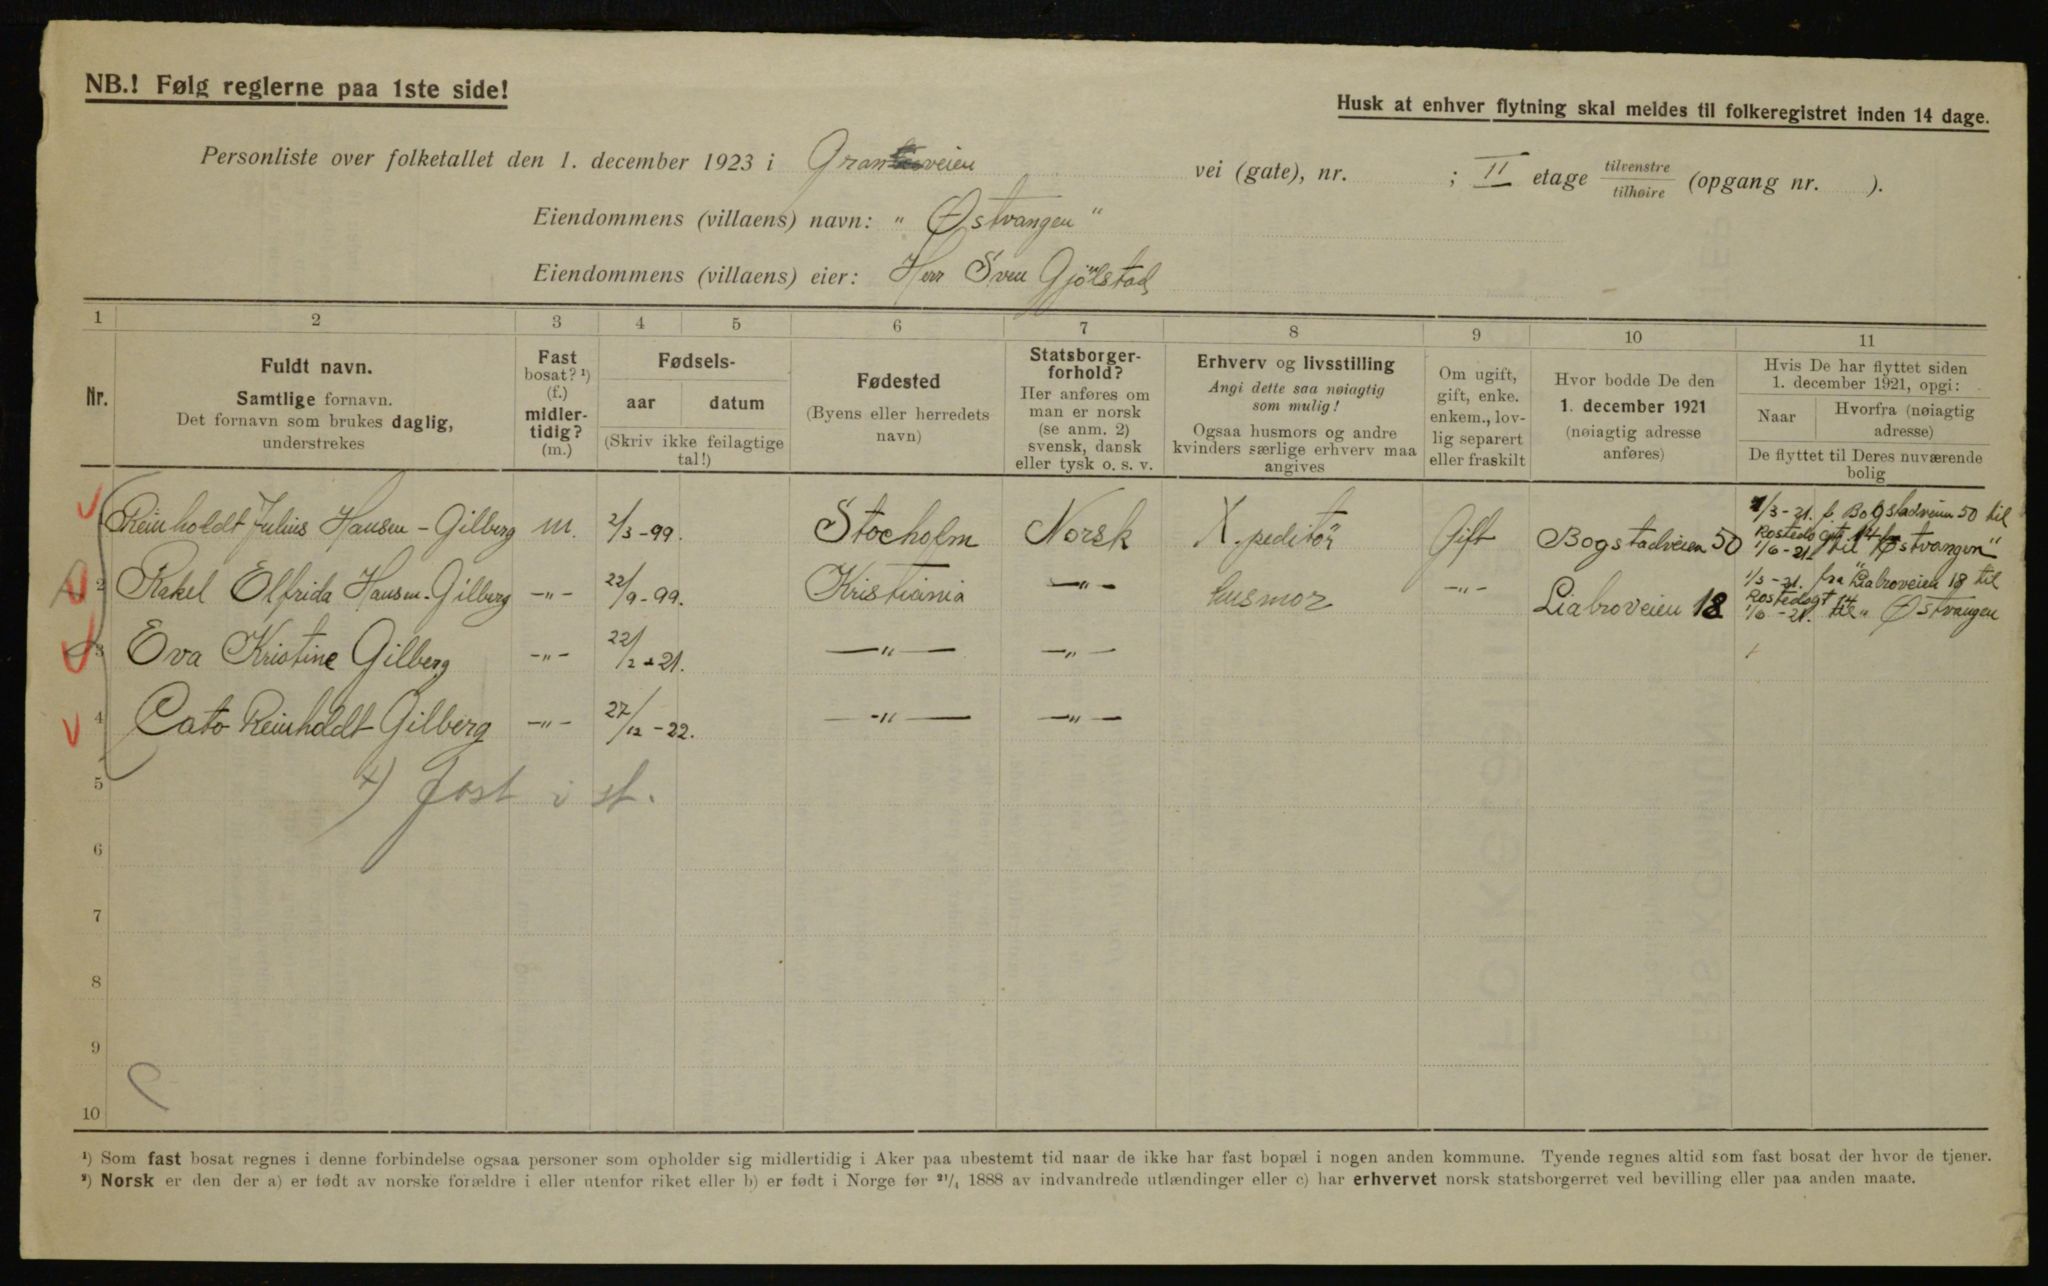 NB.! Følg reglerne paa 1ste side!
Husk at enhver flytning skal meldes til folkeregistret inden 14 dage.
Personliste over folketallet den 1. december 1923 i Granveien vei (gate), nr. ; II etage tilvenstre tilhøire (opgang nr. ).
Eiendommens (villaens) navn: " Østvangen "
Eiendommens (villaens) eier: Herr Sven Gjölstad
1 2 3 4 5 6 7 8 9 10 11
Nr.
Fuldt navn.
Samtlige fornavn.
Det fornavn som brukes daglig,
understrekes
Fast
bosat? ¹)
(f.)
midler-
tidig?
(m.)
Fødsels-
aar datum
(Skriv ikke feilagtige
tal!)
Fødested
(Byens eller herredets
navn)
Statsborger-
forhold?
Her anføres om
man er norsk
(se anm. 2)
svensk, dansk
eller tysk o. s. v.
Erhverv og livsstilling
Angi dette saa nøiagtig
som mulig!
Ogsaa husmors og andre
kvinders særlige erhverv maa
angives
Om ugift,
gift, enke.
enkem., lov-
lig separert
eller fraskilt
Hvor bodde De den
1. december 1921
(nøiagtig adresse
anføres)
Hvis De har flyttet siden
1. december 1921, opgi:
Naar
Hvorfra (nøiagtig
adresse)
De flyttet til Deres nuværende
bolig
Reinholdt Julius Hansen - Gilberg m. 2/3-99. Stocholm Norsk X.peditör Gift Bogstadveien 50 1/3-21. f. Bogstadveien 50 til
Rostedsgt 14
1/6-21. til "Østvangen"
2 Rakel Elfrida Hansen-Gilberg -"- 22/9-99. Kristiania -"- husmor -"- Liabroveien 18 1/3-21. fra Liabroveien 18 til
Rostedsgt 14
1/6-21. til " Østvangen
3 Eva Kristine Gilberg -"- 22/2-21. -"- -"-
4 Cato Reinholdt Gilberg -"- 27/12-22. -"- -"-
x) fast i st.
5
6
7
8
9
10
¹) Som fast bosat regnes i denne forbindelse ogsaa personer som opholder sig midlertidig i Aker paa ubestemt tid naar de ikke har fast bopæl i nogen anden kommune. Tyende regnes altid som fast bosat der hvor de tjener.
²) Norsk er den der a) er født av norske forældre i eller utenfor riket eller b) er født i Norge før 21/4 1888 av indvandrede utlændinger eller c) har erhvervet norsk statsborgerret ved bevilling eller paa anden maate.